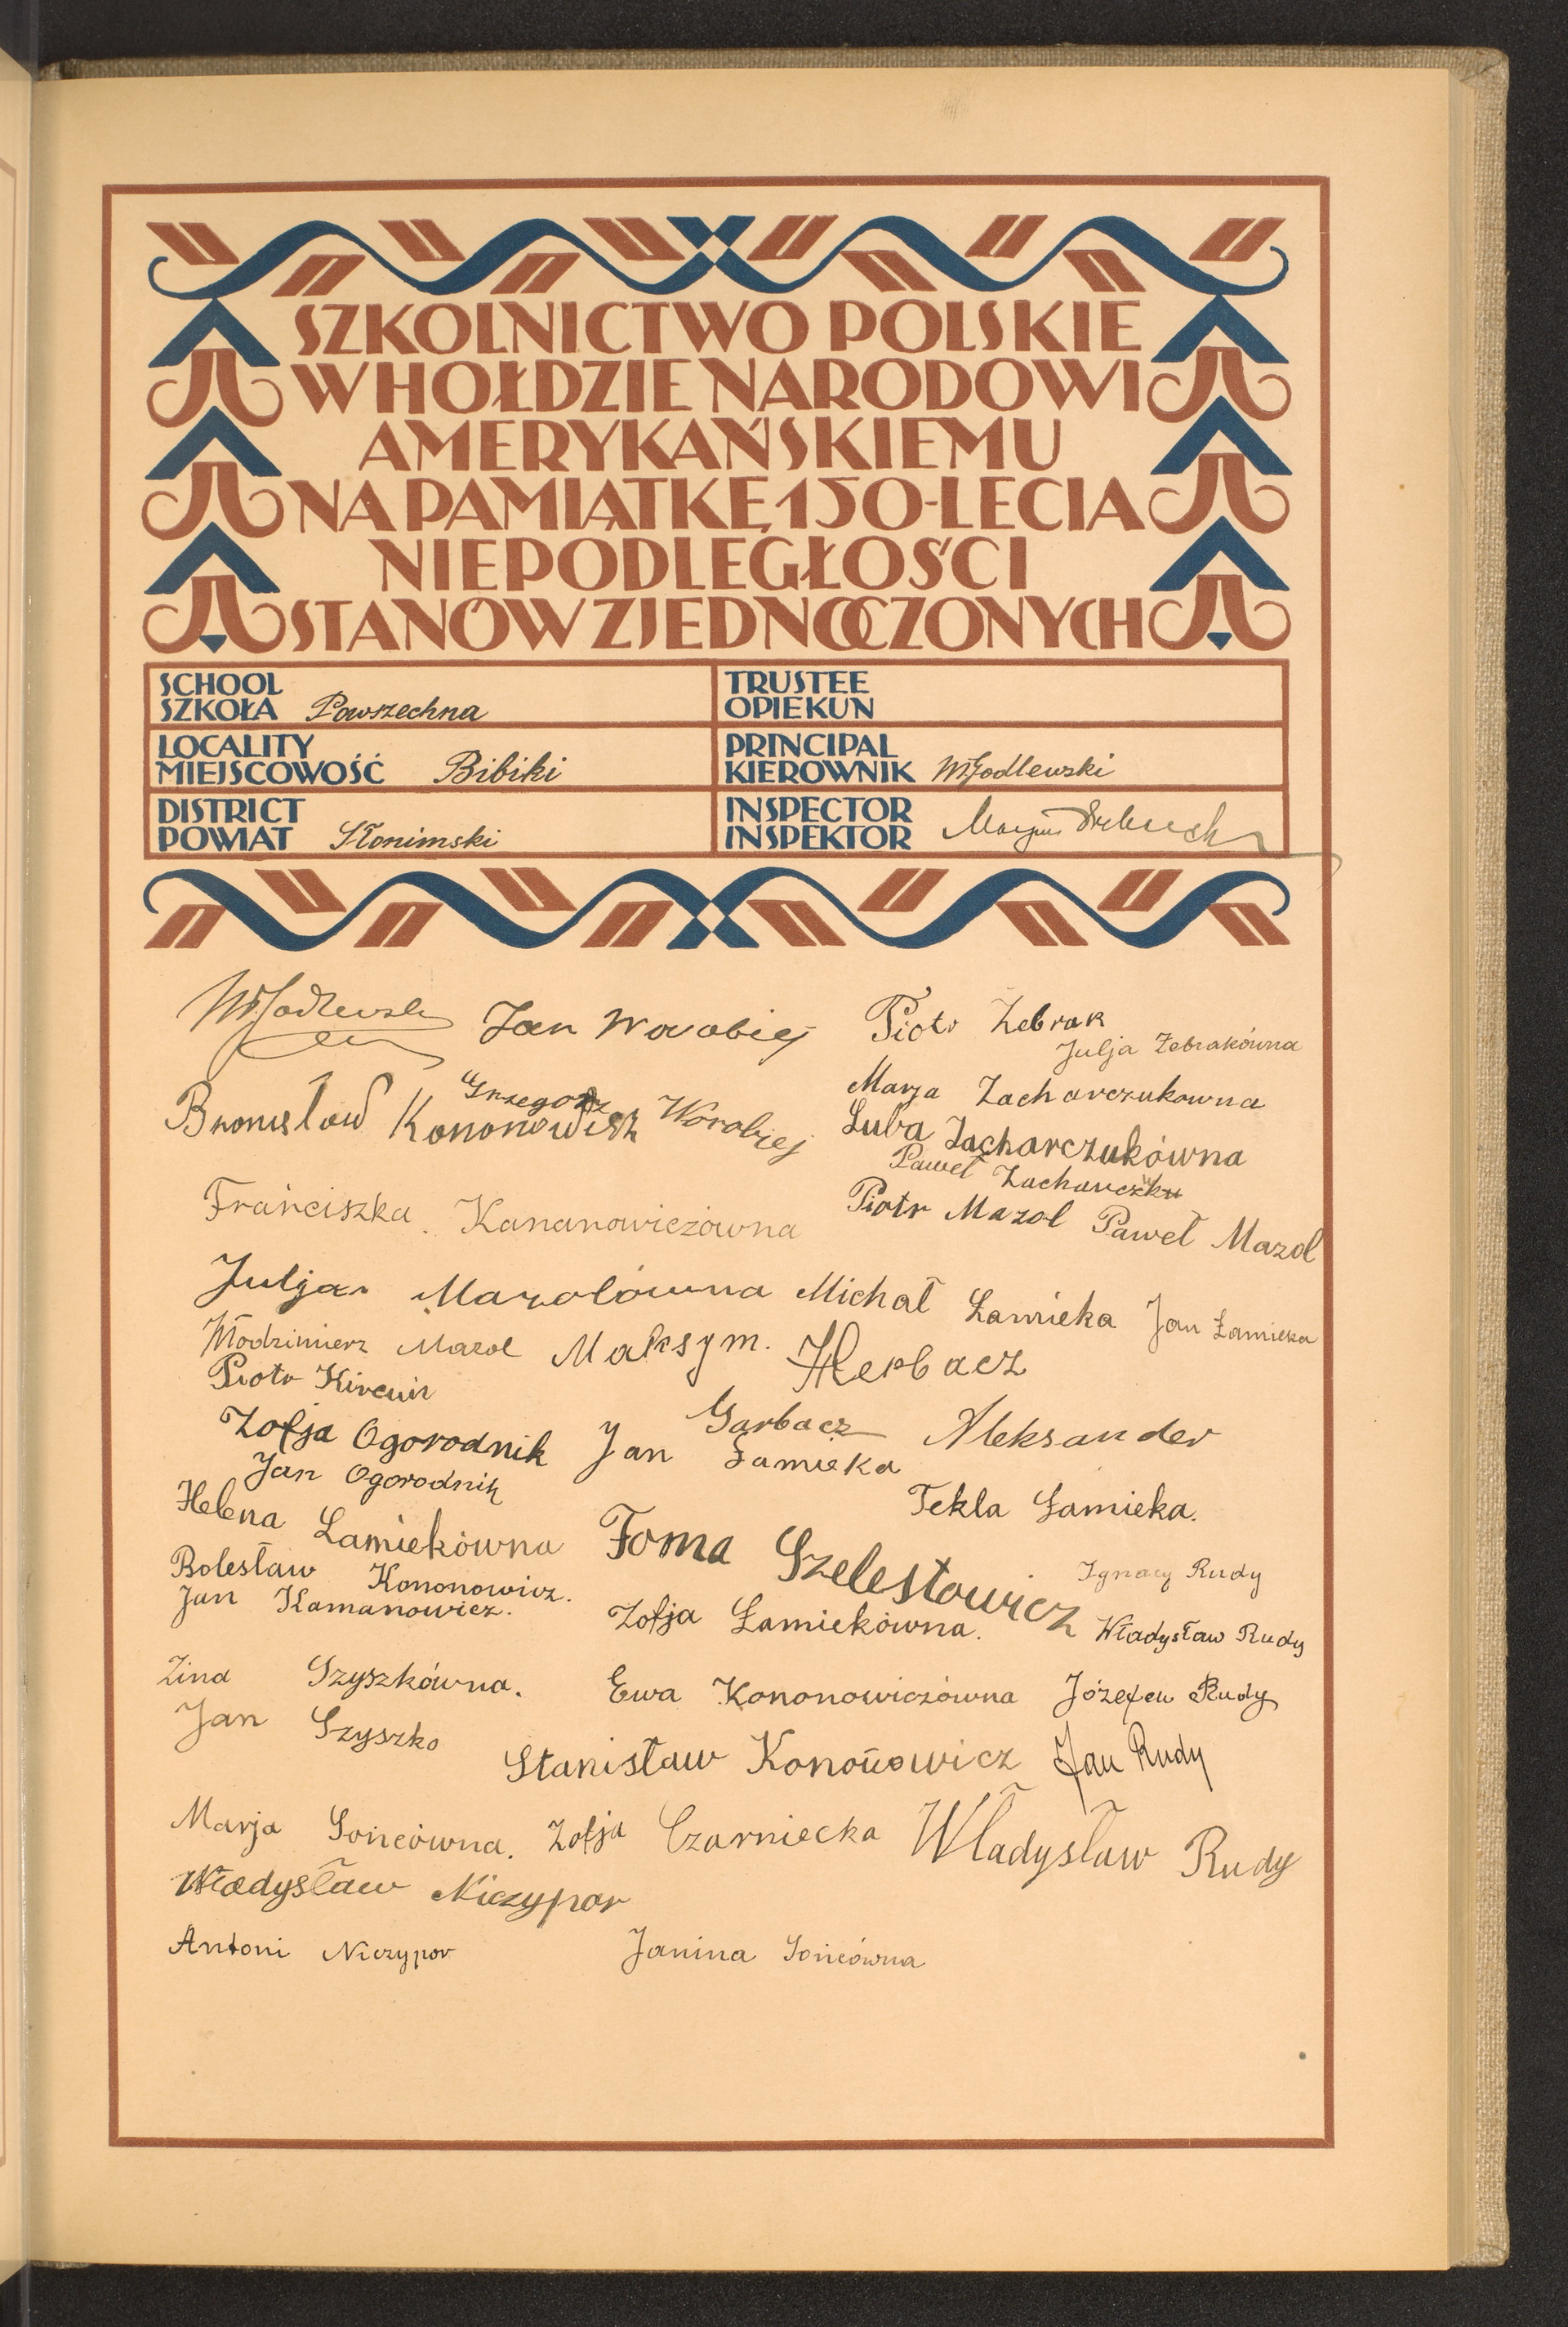 SZKOLNICTWO POLSKIE
W HOŁDZIE NARODOWI
AMERYKAŃSKIEMU
NA PAMIĄTKĘ 150-LECIA
NIEPODLEGŁOŚCI
STANÓW ZJEDNOCZONYCH
SCHOOL
SZKOŁA Powszechna
TRUSTEE
OPIEKUN
LOCALITY
MIEJSCOWOŚĆ Bibiki
PRINCIPAL
KIEROWNIK WJodlewski
DISTRICT
POWIAT Słonimski
INSPECTOR
INSPEKTOR
WJodlewski Jan Worobiej Piotr Żebrak
Julja Żebrakówna
Bronisław Kononowicz
Grzegorz Worobiej
Marja Zacharczukowna
Luba Zacharczukówna
Paweł Zacharczuk
Franciszka Kananowiczówna
Piotr Mazol Paweł Mazol
Julja Mazolówna Michał Łamieka Jan Łamieka
Włodzimierz Mazol Maksym. Herbacz
Piotr Kircuń
Garbacz Aleksander
Zofja Ogorodnik Jan Łamieka
Jan Ogorodnik
Tekla Łamieka.
Helena Łamiekówna Foma Szelestowicz
Ignacy Rudy
Bolesław Kononowicz.
Jan Kamanowicz.
Zofja Łamiekówna. Władysław Rudy
Zina Szyszkówna. Ewa Kononowiczówna Józefew Rudy
Jan Szyszko
Stanisław Kononowicz Jan Rudy
Marja Sońcówna. Zofja Czarniecka Władysław Rudy
Władysław Niczypor
Antoni Niczypor Janina Sońcówna